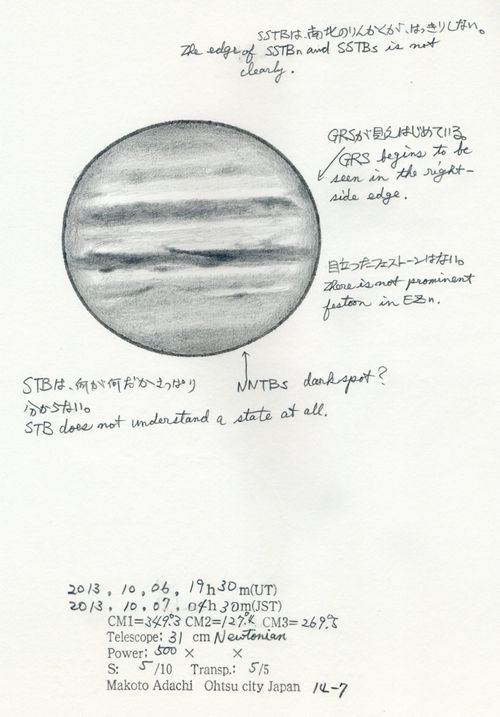 SSTBは、南北のりんかくが、はっきりしない。
The edge of SSTBn and SSTBs is not
clearly.
GRSが見えはじめている。
GRS begins to be
seen in the right-
side edge.
目立ったフェストーンはない。
There is not prominent
festoon in EZn.
STBは、何が何だかさっぱり
分からない。
STB does not understand a state at all.
NNTBs dark spot?
2013, 10, 06, 19h30m(UT)
2013, 10, 07, 04h30m(JST)
CM1=349.°3 CM2=127.°2 CM3=269.°5
Telescope; 31 cm Newtonian
Power; 500 × ×
S: 5/10 Transp.: 5/5
Makoto Adachi Ohtsu city Japan 14-7